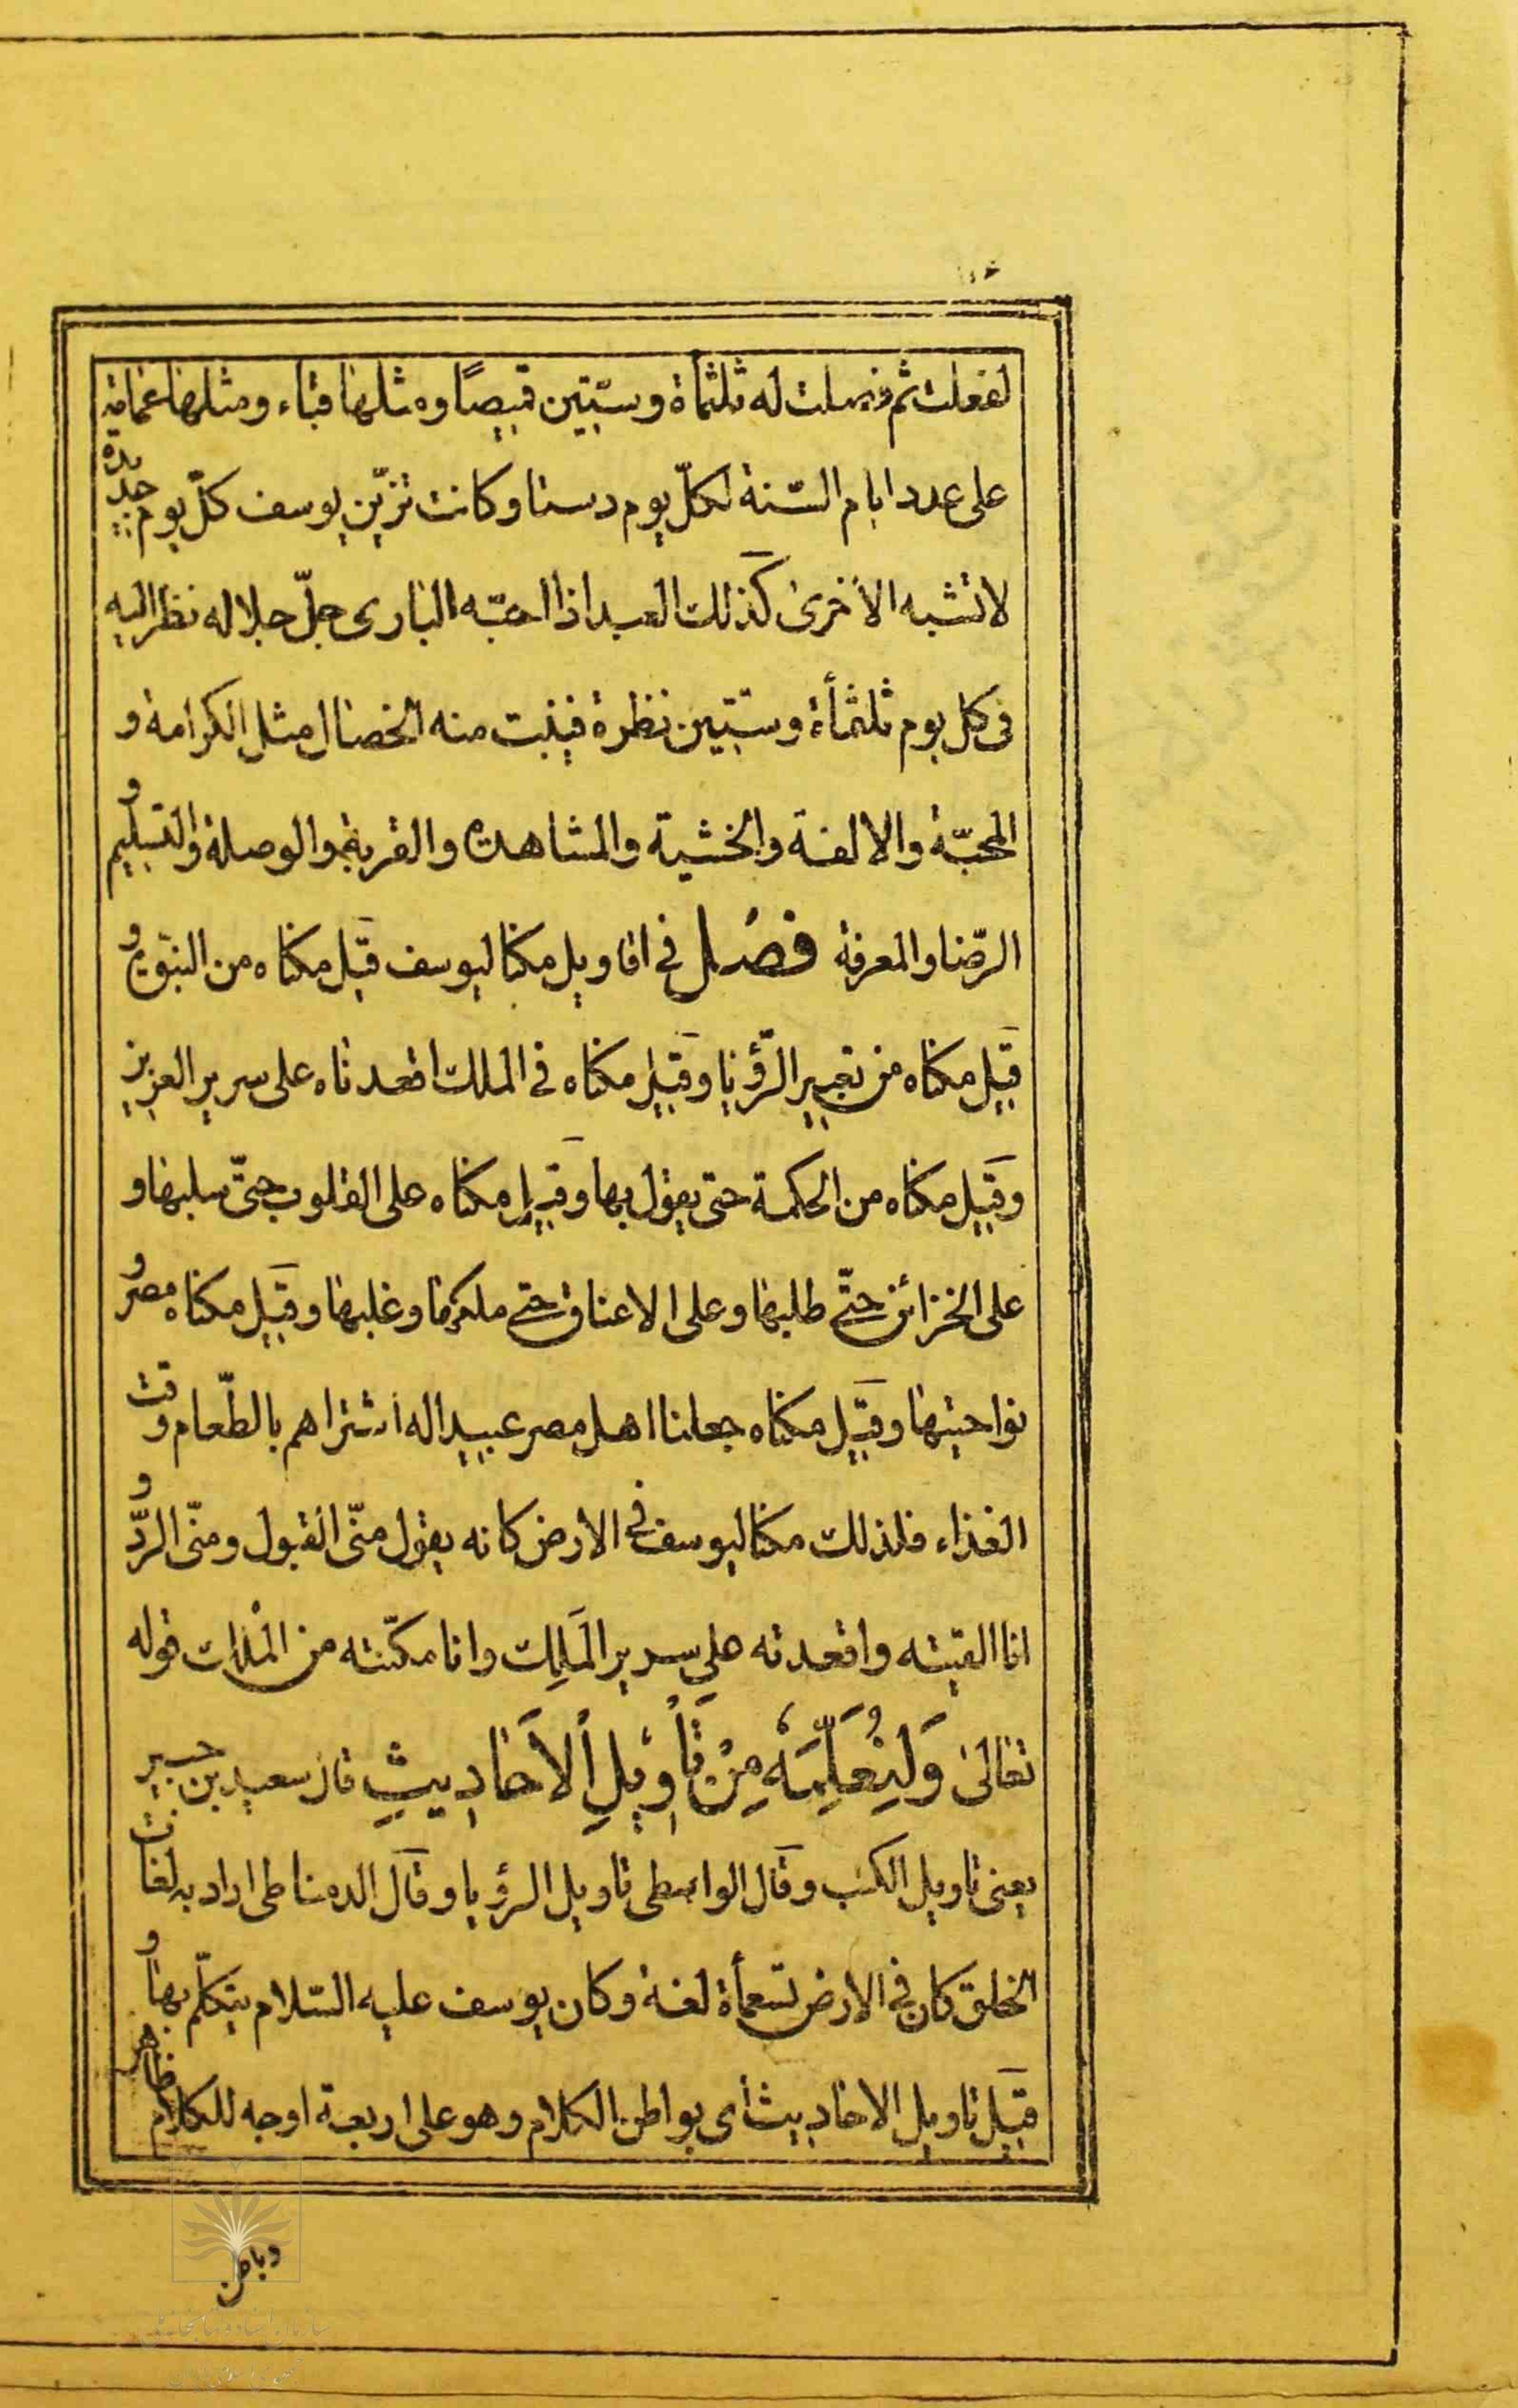 لفعلت ثم فصلت له ثلثمأة وستّين قميصًا ومثلها قباء ومثلها عمامة
على عدد ايام السّنة لكلّ يوم دستا وكانت تزيّن يوسف كلّ يوم جديدة
لا تشبه الأخرى كذلك العبد اذا احبّه البارى جلّ جلاله نظر اليه
فى كل يوم ثلثمأة وستّين نظرة فينبت منه الخصال مثل الكرامة و
المحبّة والالفة والخشية والمشاهدة والقربة والوصلة والتسليم و
الرّضا والمعرفة فصل فى اقاويل مكنا ليوسف قيل مكناه من النبوّة و
قيل مكناه من تعبير الرّؤيا وقيل مكناه فى الملك اقعدناه على سرير العزيز
وقيل مكناه من الحكمة حتى يقول بها وقيل مكناه على القلوب حتّى سلبها و
على الخزائن حتّى طلبها وعلى الاعناق حتى ملكها وغلبها وقيل مكناه مصر و
نواحيها وقيل مكناه جعلنا اهل مصر عبيدا له اشتراهم بالطّعام وقت
الغذاء فلذلك مكنا ليوسف فى الارض كانه يقول منّى القبول ومنّى الردّ و
انا القيته واقعدته على سرير الملك وانا مكّنته من الملك قوله
تعالى وَلِنُعَلِّمَهُ مِنْ تَأْوِيلِ الْأَحَادِيثِ قال سعيد بن جبير
يعنى تاويل الكتب وقال الواسطى تاويل الرؤيا وقال الدمياطى اراد به لغات
الخلق كان فى الارض تسعمأة لغة وكان يوسف عليه السّلام يتكلّم بها و
قيل تاويل الاحاديث اى بواطن الكلام وهو على اربعة اوجه للكلام ظاهر
وباطن